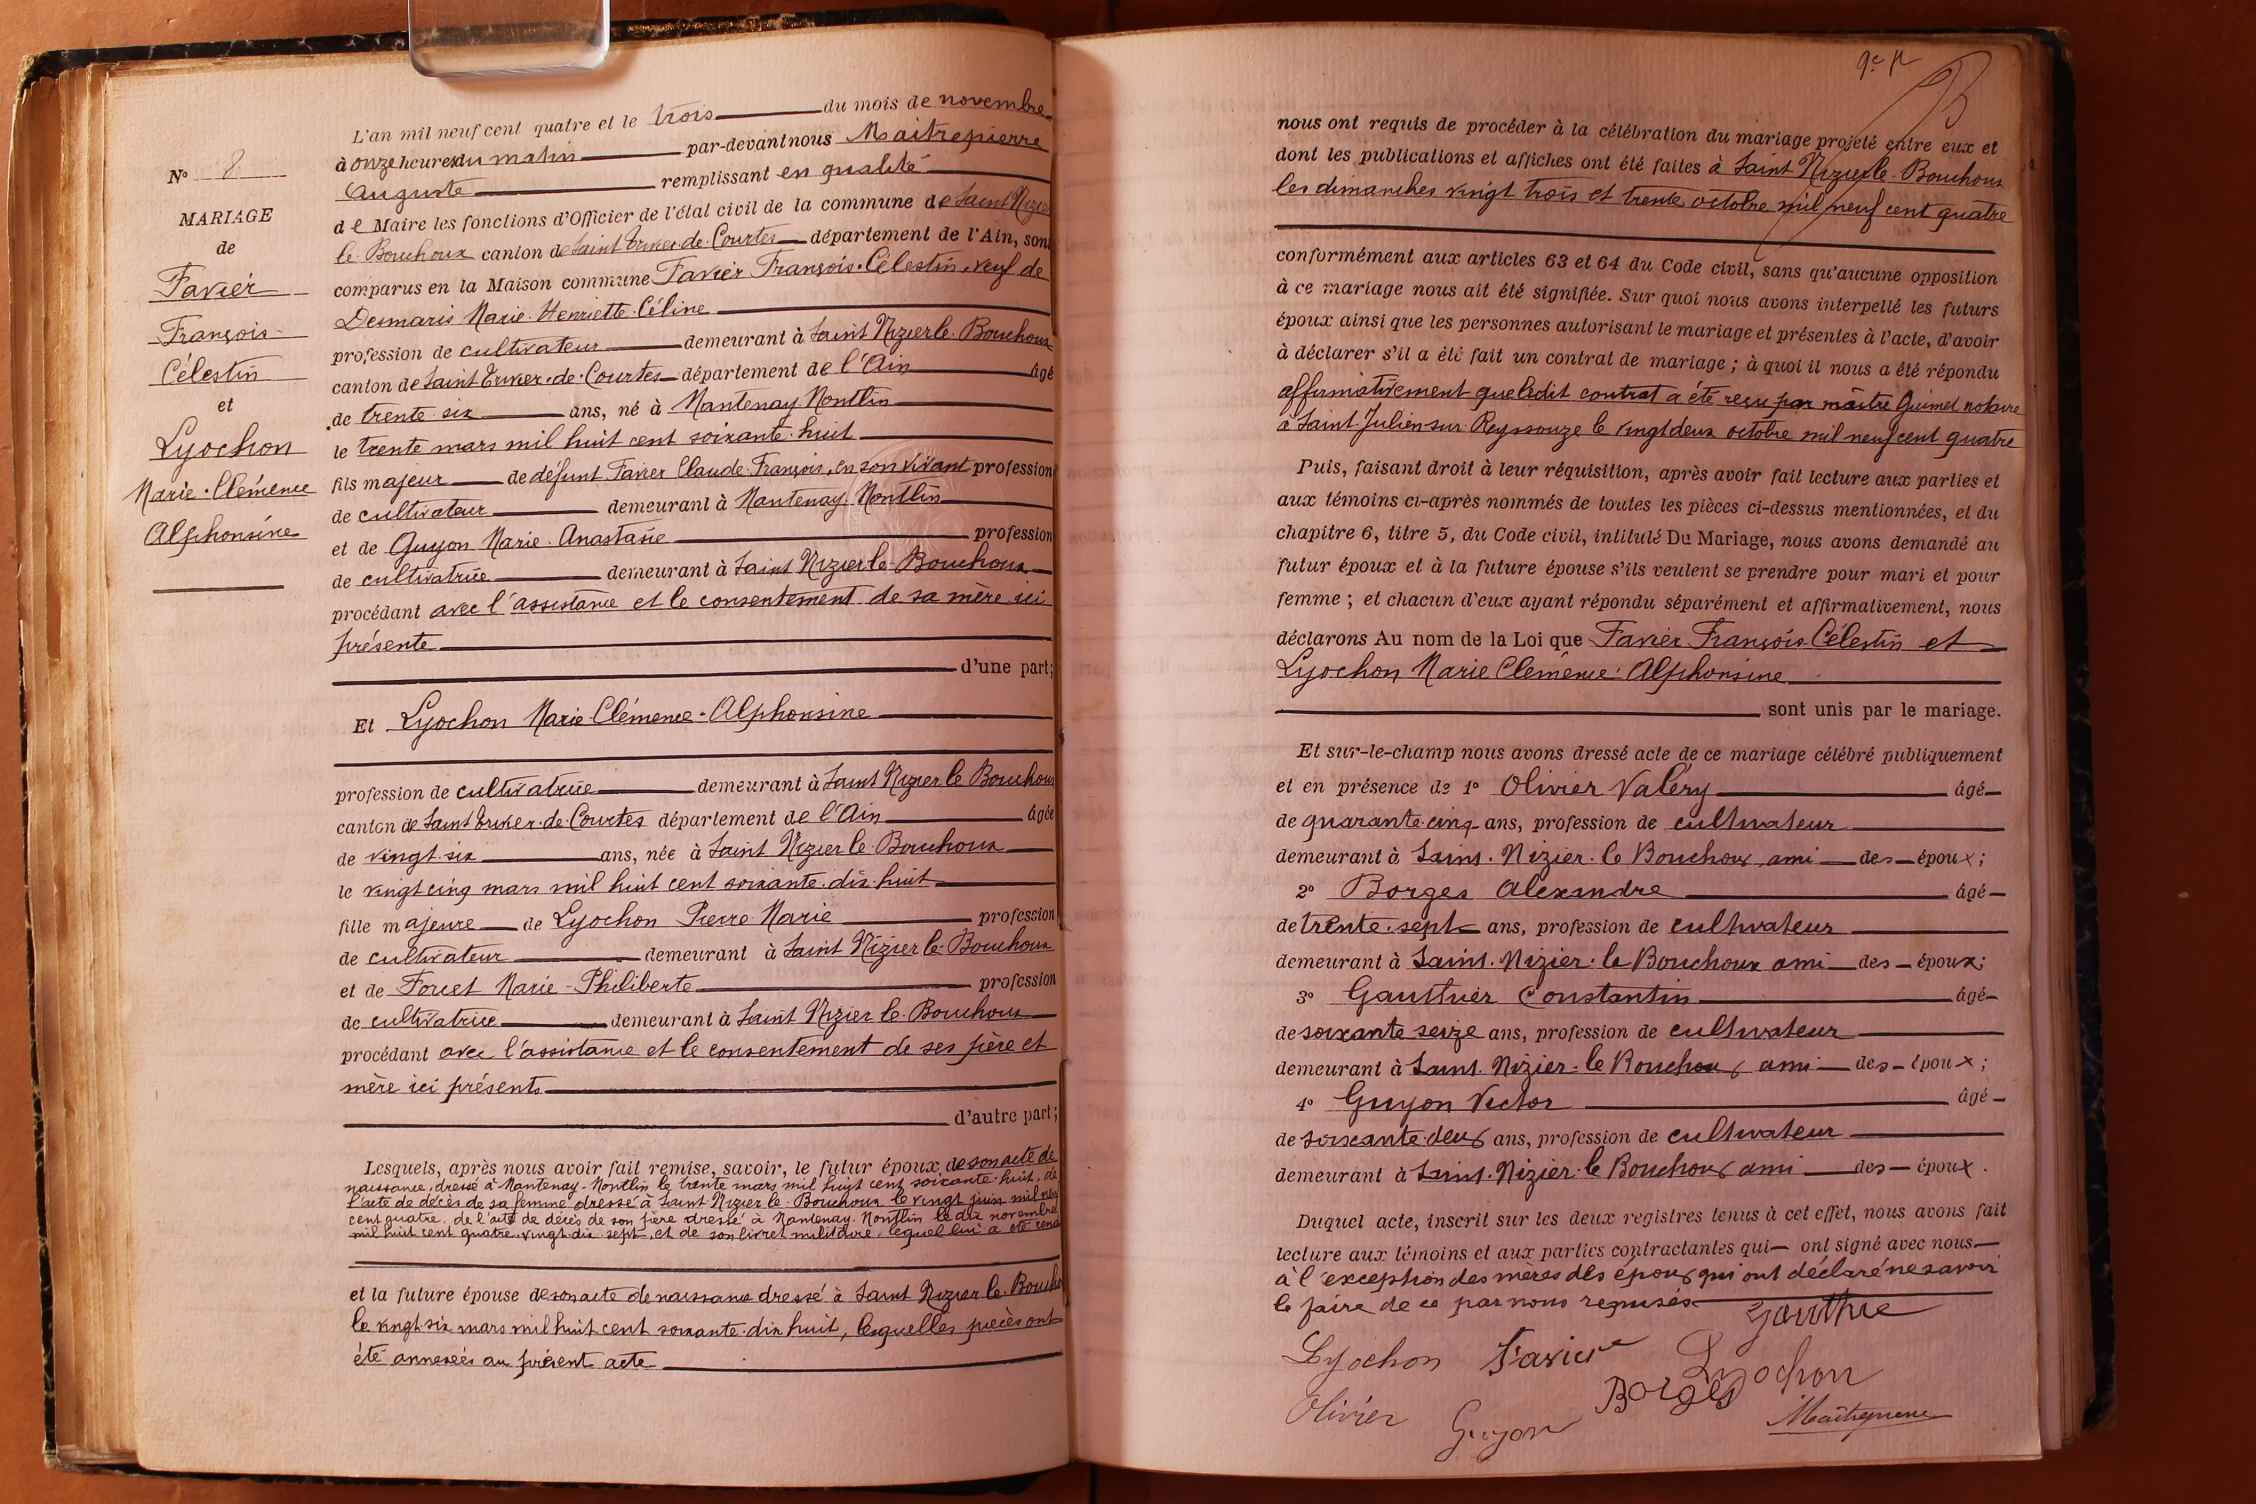 L'an mil neuf cent quatre et le trois du mois de novembre
à onze heures du matin par-devant nous Maitrepierre
Auguste remplissant en qualité
de Maire les fonctions d'Officier de l'état civil de la commune de Saint Nizier
le Bouchoux canton de Saint Trivier-de-Courtes département de l'Ain, sont
comparus en la Maison commune Favier François-Célestin, veuf de
Desmaris Marie-Henriette-Céline
profession de cultivateur demeurant à Saint Nizier le-Bouchoux
canton de Saint Trivier-de-Courtes département de l'Ain âgé
de trente-six ans, né à Mantenay-Montlin
le trente mars mil huit cent soixante-huit
fils majeur de défunt Favier Claude-François, en son vivant profession
de cultivateur demeurant à Mantenay-Montlin
et de Guyon Marie-Anastasie profession
de cultivatrice demeurant à Saint Nizier le-Bouchoux
procédant avec l'assistance et le consentement de sa mère ici
présente
d'une part;
Et Lyochon Marie-Clémence-Alphonsine
profession de cultivatrice demeurant à Saint Nizier le Bouchoux
canton de Saint Trivier-de-Courtes département de l'Ain âgée
de vingt-six ans, née à Saint Nizier le-Bouchoux
le vingt cinq mars mil huit cent soixante-dix-huit
fille majeure de Lyochon Pierre-Marie profession
de cultivateur demeurant à Saint Nizier le-Bouchoux
et de Foret Marie-Philiberte profession
de cultivatrice demeurant à Saint Nizier le-Bouchoux
procédant avec l'assistance et le consentement de ses père et
mère ici présents
d'autre part;
Lesquels, après nous avoir fait remise, savoir, le futur époux, de son acte de
naissance, dressé à Mantenay-Montlin le trente mars mil huit cent soixante-huit, de
l'acte de décès de sa femme dressé à Saint Nizier le-Bouchoux le vingt juin mil neuf
cent quatre, de l'acte de décès de son père dressé à Mantenay-Montlin le dix novembre
mil huit cent quatre-vingt-dix sept, et de son livret militaire, lequel lui a été rendu
et la future épouse de son acte de naissance dressé à Saint Nizier le-Bouchoux
le vingt-six mars mil huit cent soixante-dix huit, lesquelles pièces ont
été annexées au présent acte
N° 8
MARIAGE
de
Favier
François-
Célestin
et
Lyochon
Marie-Clémence
Alphonsine
nous ont requis de procéder à la célébration du mariage projeté entre eux et
dont les publications et affiches ont été faites à Saint Nizier le-Bouchoux
les dimanches vingt trois et trente octobre mil neuf cent quatre
conformément aux articles 63 et 64 du Code civil, sans qu'aucune opposition
à ce mariage nous ait été signifiée. Sur quoi nous avons interpellé les futurs
époux ainsi que les personnes autorisant le mariage et présentes à l'acte, d'avoir
à déclarer s'il a été fait un contrat de mariage; à quoi il nous a été répondu
affirmativement que ledit contrat a été reçu par maître Guimet notaire
à Saint-Julien-sur-Reyssouze le vingt deux octobre mil neuf cent quatre
Puis, faisant droit à leur réquisition, après avoir fait lecture aux parties et
aux témoins ci-après nommés de toutes les pièces ci-dessus mentionnées, et du
chapitre 6, titre 5, du Code civil, intitulé Du Mariage, nous avons demandé au
futur époux et à la future épouse s'ils veulent se prendre pour mari et pour
femme; et chacun d'eux ayant répondu séparément et affirmativement, nous
déclarons Au nom de la Loi que Favier François Célestin et
Lyochon Marie Clémence-Alphonsine
sont unis par le mariage.
Et sur-le-champ nous avons dressé acte de ce mariage célébré publiquement
et en présence de 1° Olivier Valéry âgé
de quarante-cinq ans, profession de cultivateur
demeurant à Saint-Nizier-le Bouchoux, ami des époux;
2° Borges Alexandre âgé
de trente-sept ans, profession de cultivateur
demeurant à Saint-Nizier-le Bouchoux ami des époux;
3° Gauthier Constantin âgé
de soixante seize ans, profession de cultivateur
demeurant à Saint-Nizier-le Bouchoux, ami des époux;
4° Guyon Victor âgé
de soixante-deux ans, profession de cultivateur
demeurant à Saint-Nizier-le Bouchoux ami des époux.
Duquel acte, inscrit sur les deux registres tenus à cet effet, nous avons fait
lecture aux témoins et aux parties contractantes qui ont signé avec nous
à l'exception des mères des époux qui ont déclaré ne savoir
le faire de ce par nous requises
Gauthier
Lyochon Favier Lyochon
Olivier Guyon Borges Maitrepierre